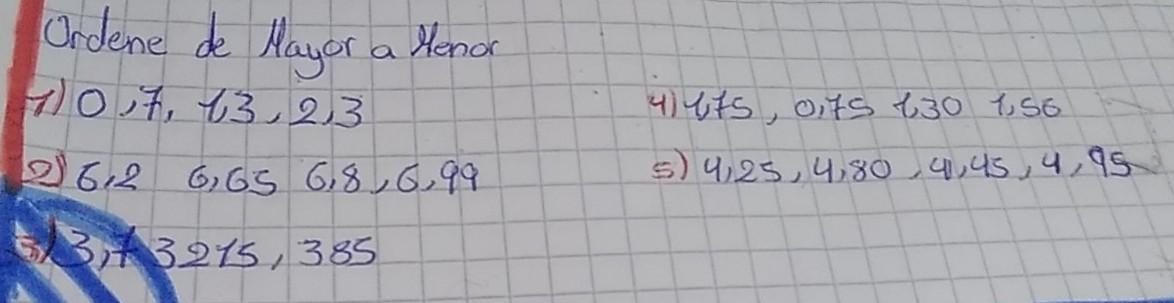 Ordene de Mayor a Menor
1) 0,7, 1,3, 2,3
2) 6,2 6,65 6,8, 6,99
3) 3,7 3215, 385
4) 1,75, 0,75 1,30 1,56
5) 4,25, 4,80, 4,45, 4,95